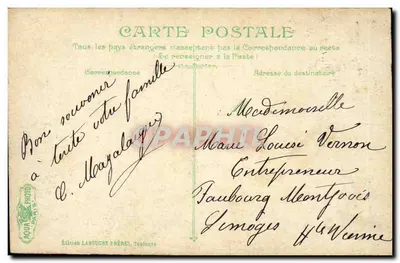 CARTE POSTALE
Tous les pays étrangers n'acceptent pas la Correspondance au recto
(Se renseigner à la Poste)
Correspondance
Adresse du destinataire
Bon souvenir
à toute votre famille
C.
Mademoiselle
Marie Louise Vernon
Entrepreneur
Faubourg Montjovis
Limoges Hte Vienne
Edition LABOUCHE FRÈRES, Toulouse